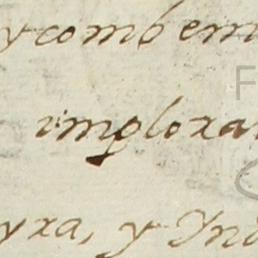 y combem
imploxa
yxa, y Ynd